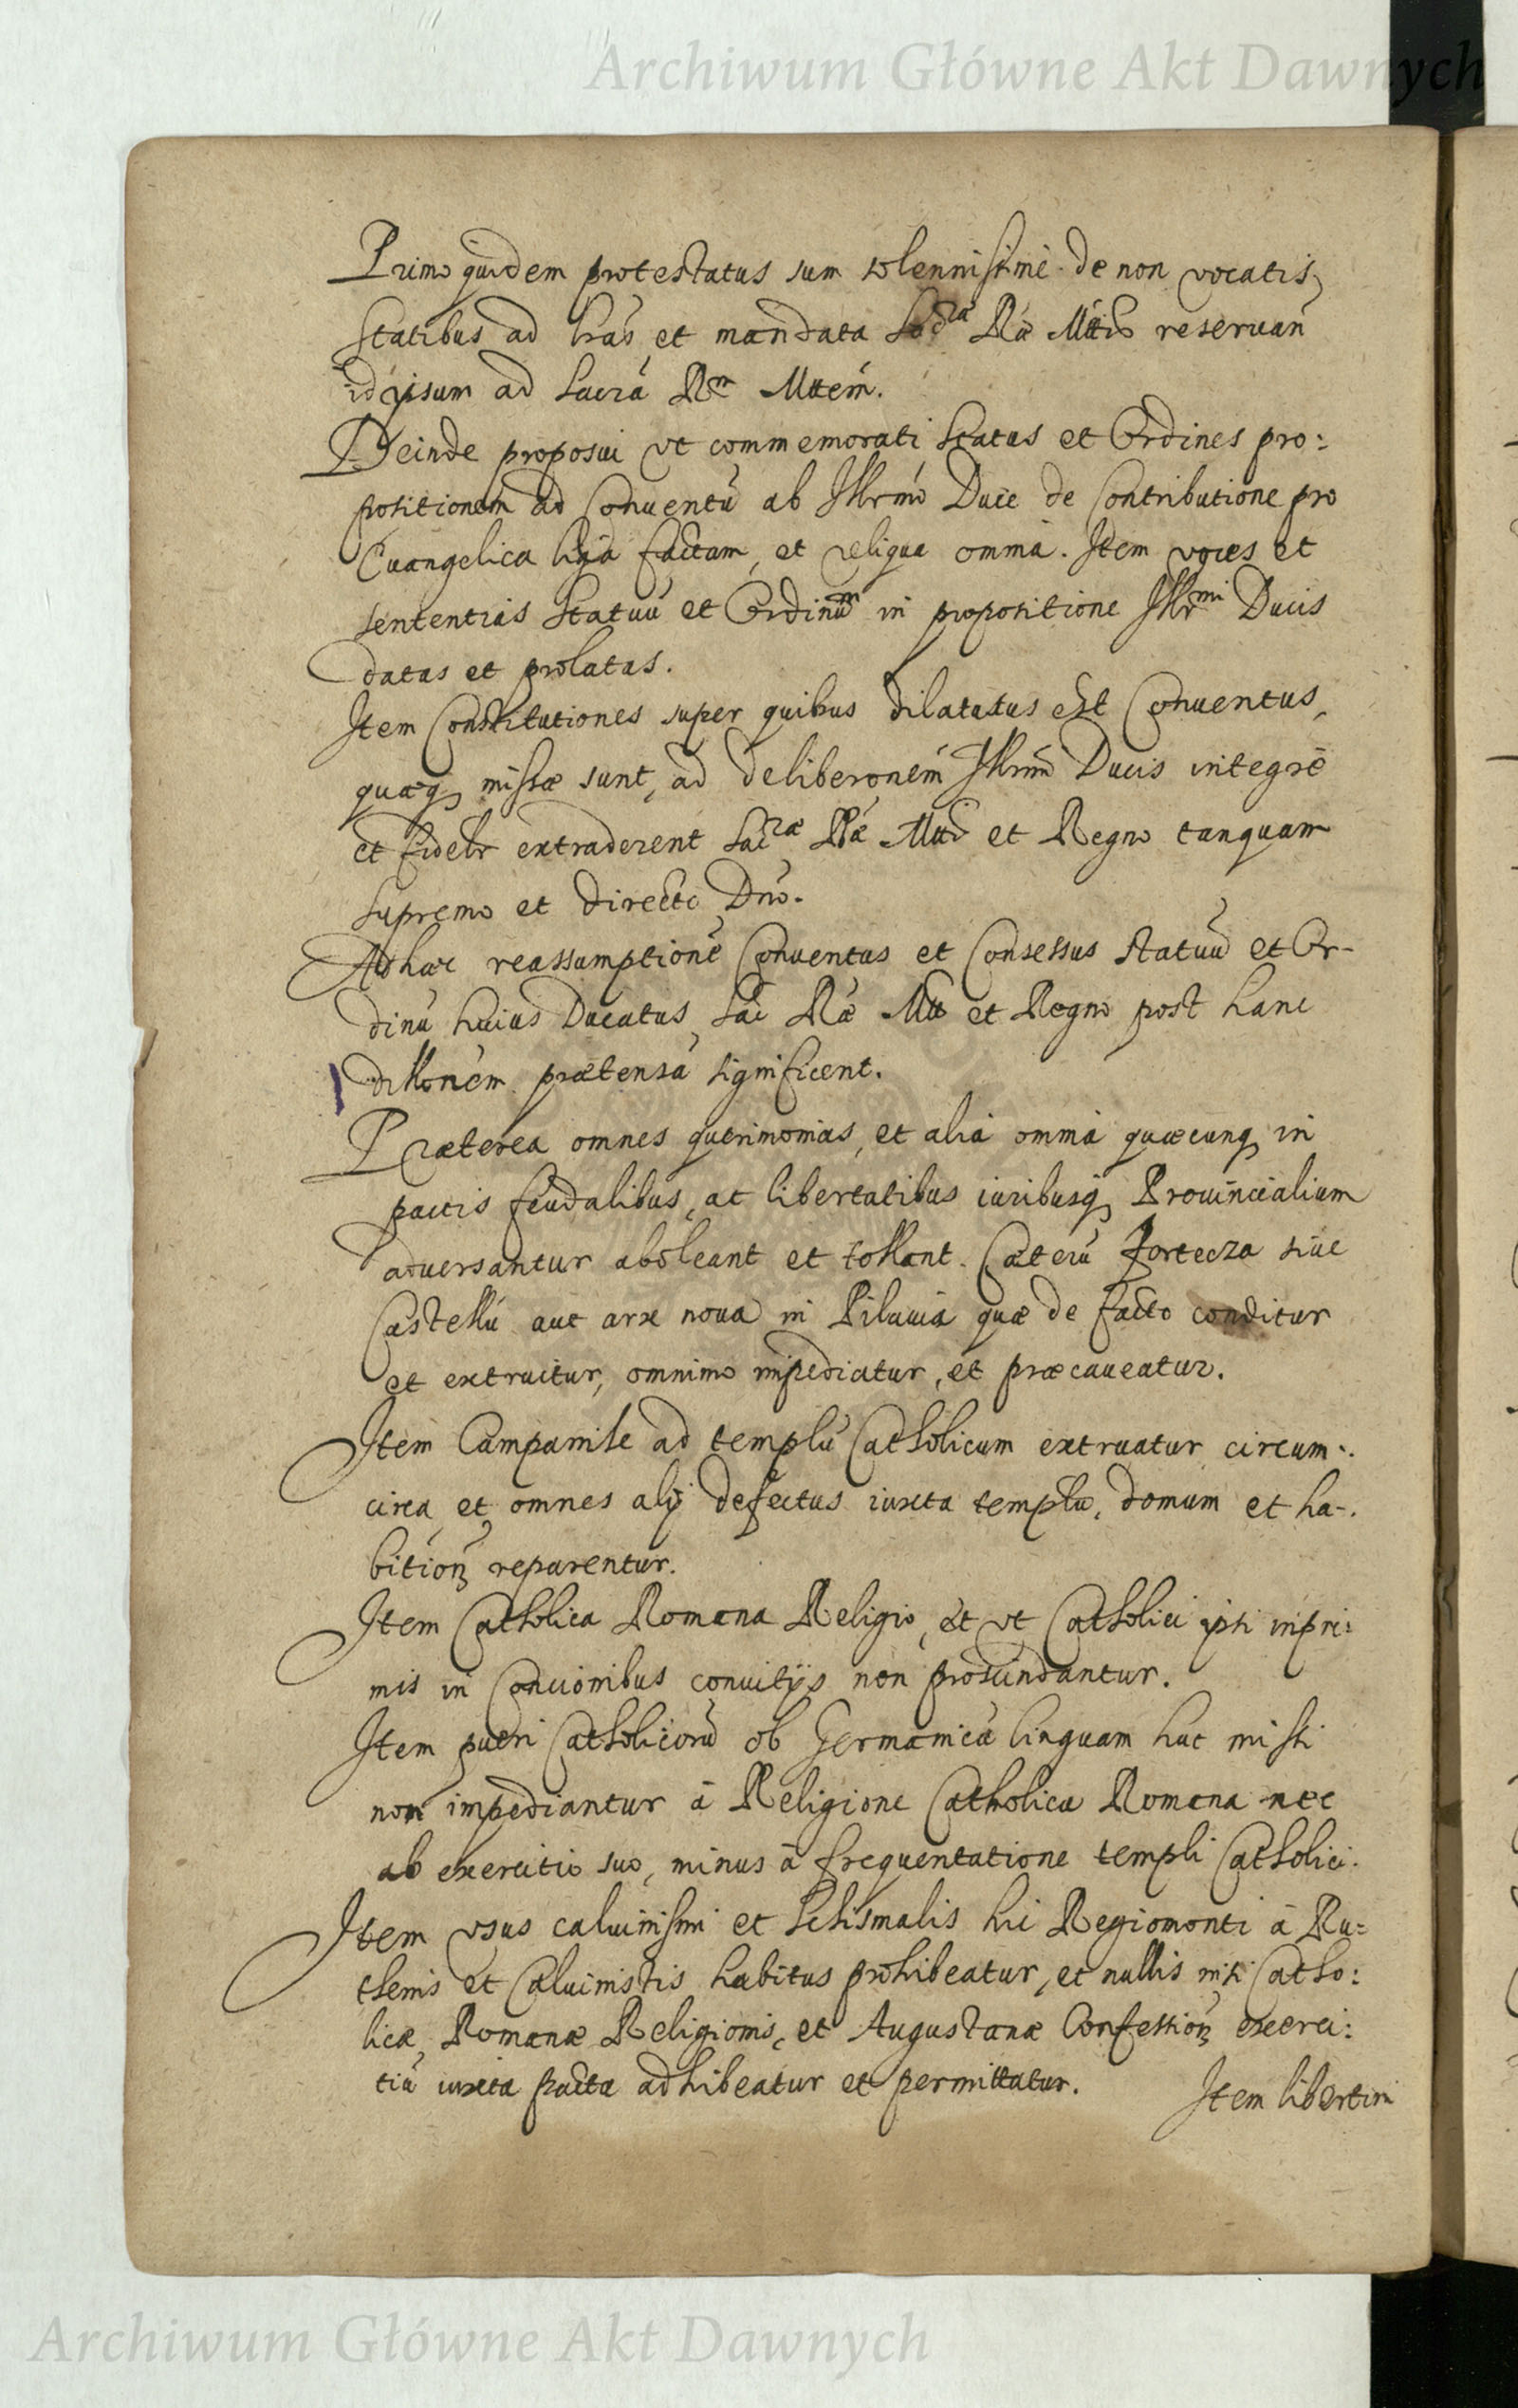 Archiwum Główne Akt Dawnych
Primo quidem protestatus sum solennissime de non vocatis
Statibus ad lras et mandata Sacrae Rae Mttis reseruan
id ipsum ad Sacrá Rm Mttem.
Deinde proposui vt commemorati Status et Ordines pro:
positionem ad Conuentū ab Illrmo Duce de Contributione pro
Euangelica liga factam, et reliqua omnia. Item voces et
sententias Statuū et Ordinum in propositione Illrmi Ducis
datas et prolatas.
Item Constitutiones super quibus dilatatus est Conuentus,
quaeq missae sunt, ad deliberonem Illrmi Ducis integrè
et fidelr extraderent Sacrae Rae Mtti et Regno tanquam
supremo et directo Dno.
Ab hac reassumptione Conuentus et Consessus Statuū et Or-
dinū huius Ducatus, Sac Rae Mtti et Regno post hanc
dillonem praetensa significent.
Praeterea omnes querimonias, et alia omnia quaecunq in
pactis feudalibus, ac libertatibus iuribusq Prouincialium
aduersantur aboleant et tollant. Caeterū Fortecza siue
Castellū aut arx noua in Pilauia quae de facto conditur
et extruitur, omnimo impediatur, et praecaueatur.
Item Campanile ad templū Catholicum extruatur circum-.
circa, et omnes alij defectus iuxta templū, domum et ha-.
bitioñ reparentur.
Item Catholica Romana Religio, et vt Catholici ipsi inpri:
mis in Concionibus conuitijs non proscindantur.
Item pueri Catholicorū ob Germanicā linguam huc missi
non impediantur à Religione Catholica Romana nec
ab exercitio suo, minus à frequentatione templi Catholici.
Item vsus caluinismi et Schismatis hic Regiomonti à Ru:
thenis et Caluinistis habitus prohibeatur, et nullis nisi Catho:
licae, Romanae Religionis, et Augustanae Confessioñ exerci:
tiū iuxta pacta adhibeatur et permittatur.
Item libertini
Archiwum Główne Akt Dawnych